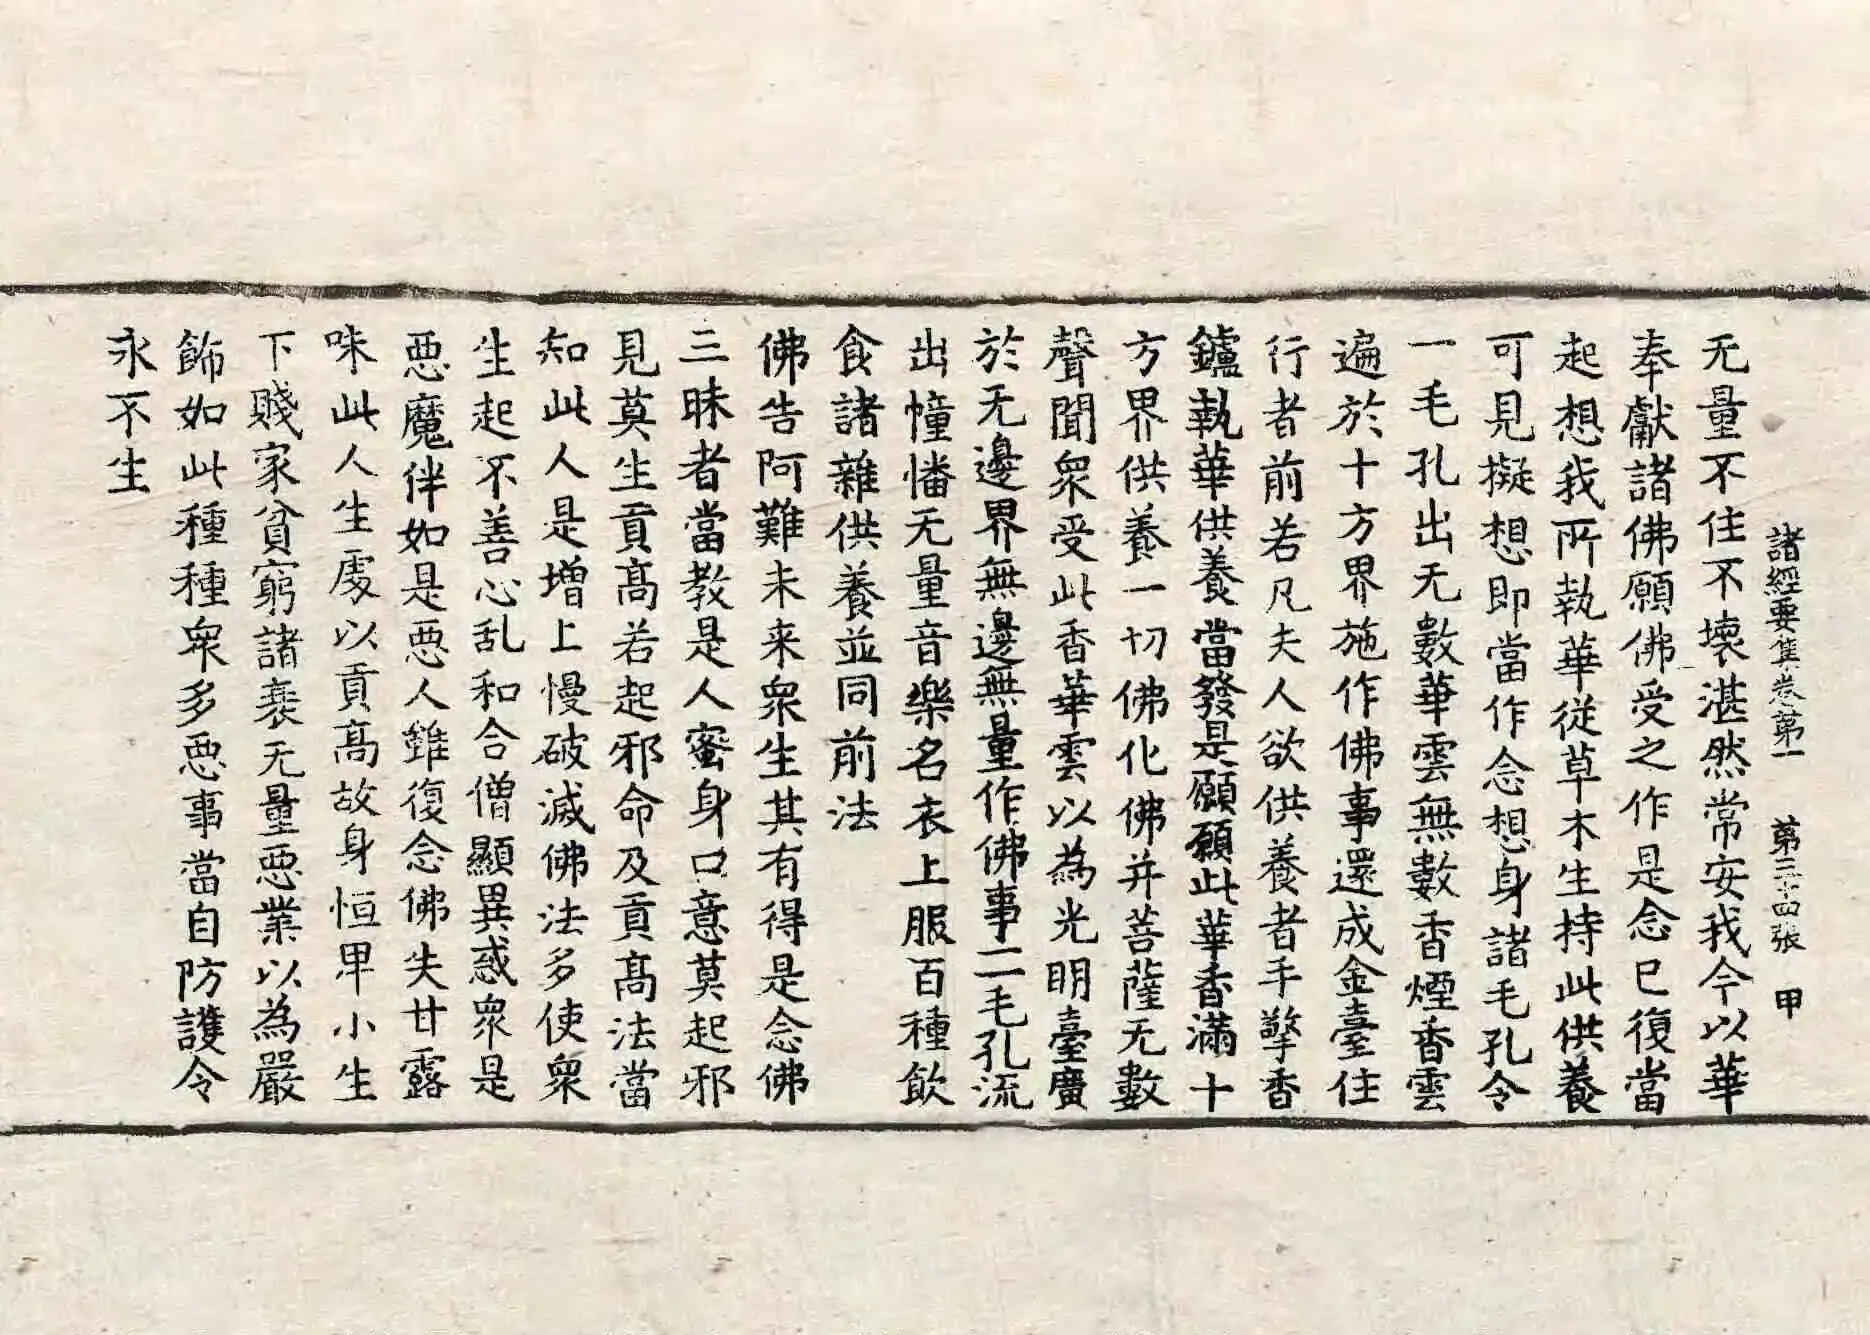 諸經要集卷第一　第三十四張　甲
无量不住不壞湛然常安我今以華
奉獻諸佛願佛受之作是念已復當
起想我所執華從草木生持此供養
可見擬想即當作念想身諸毛孔令
一毛孔出无數華雲無數香煙香雲
遍於十方界施作佛事還成金臺住
行者前若凡夫人欲供養者手擎香
鑪執華供養當發是願願此華香滿十
方界供養一切佛化佛并菩薩无數
聲聞衆受此香華雲以為光明臺廣
於无邊界無邊無量作佛事二毛孔流
出幢幡无量音樂名衣上服百種飲
食諸雜供養並同前法
佛告阿難未来衆生其有得是念佛
三昧者當教是人蜜身口意莫起邪
見莫生貢髙若起邪命及貢髙法當
知此人是增上慢破滅佛法多使衆
生起不善心乱和合僧顯異惑衆是
惡魔伴如是惡人雖復念佛失甘露
味此人生處以貢髙故身恒卑小生
下賤家貧窮諸衰无量惡業以為嚴
飾如此種種衆多惡事當自防護令
永不生